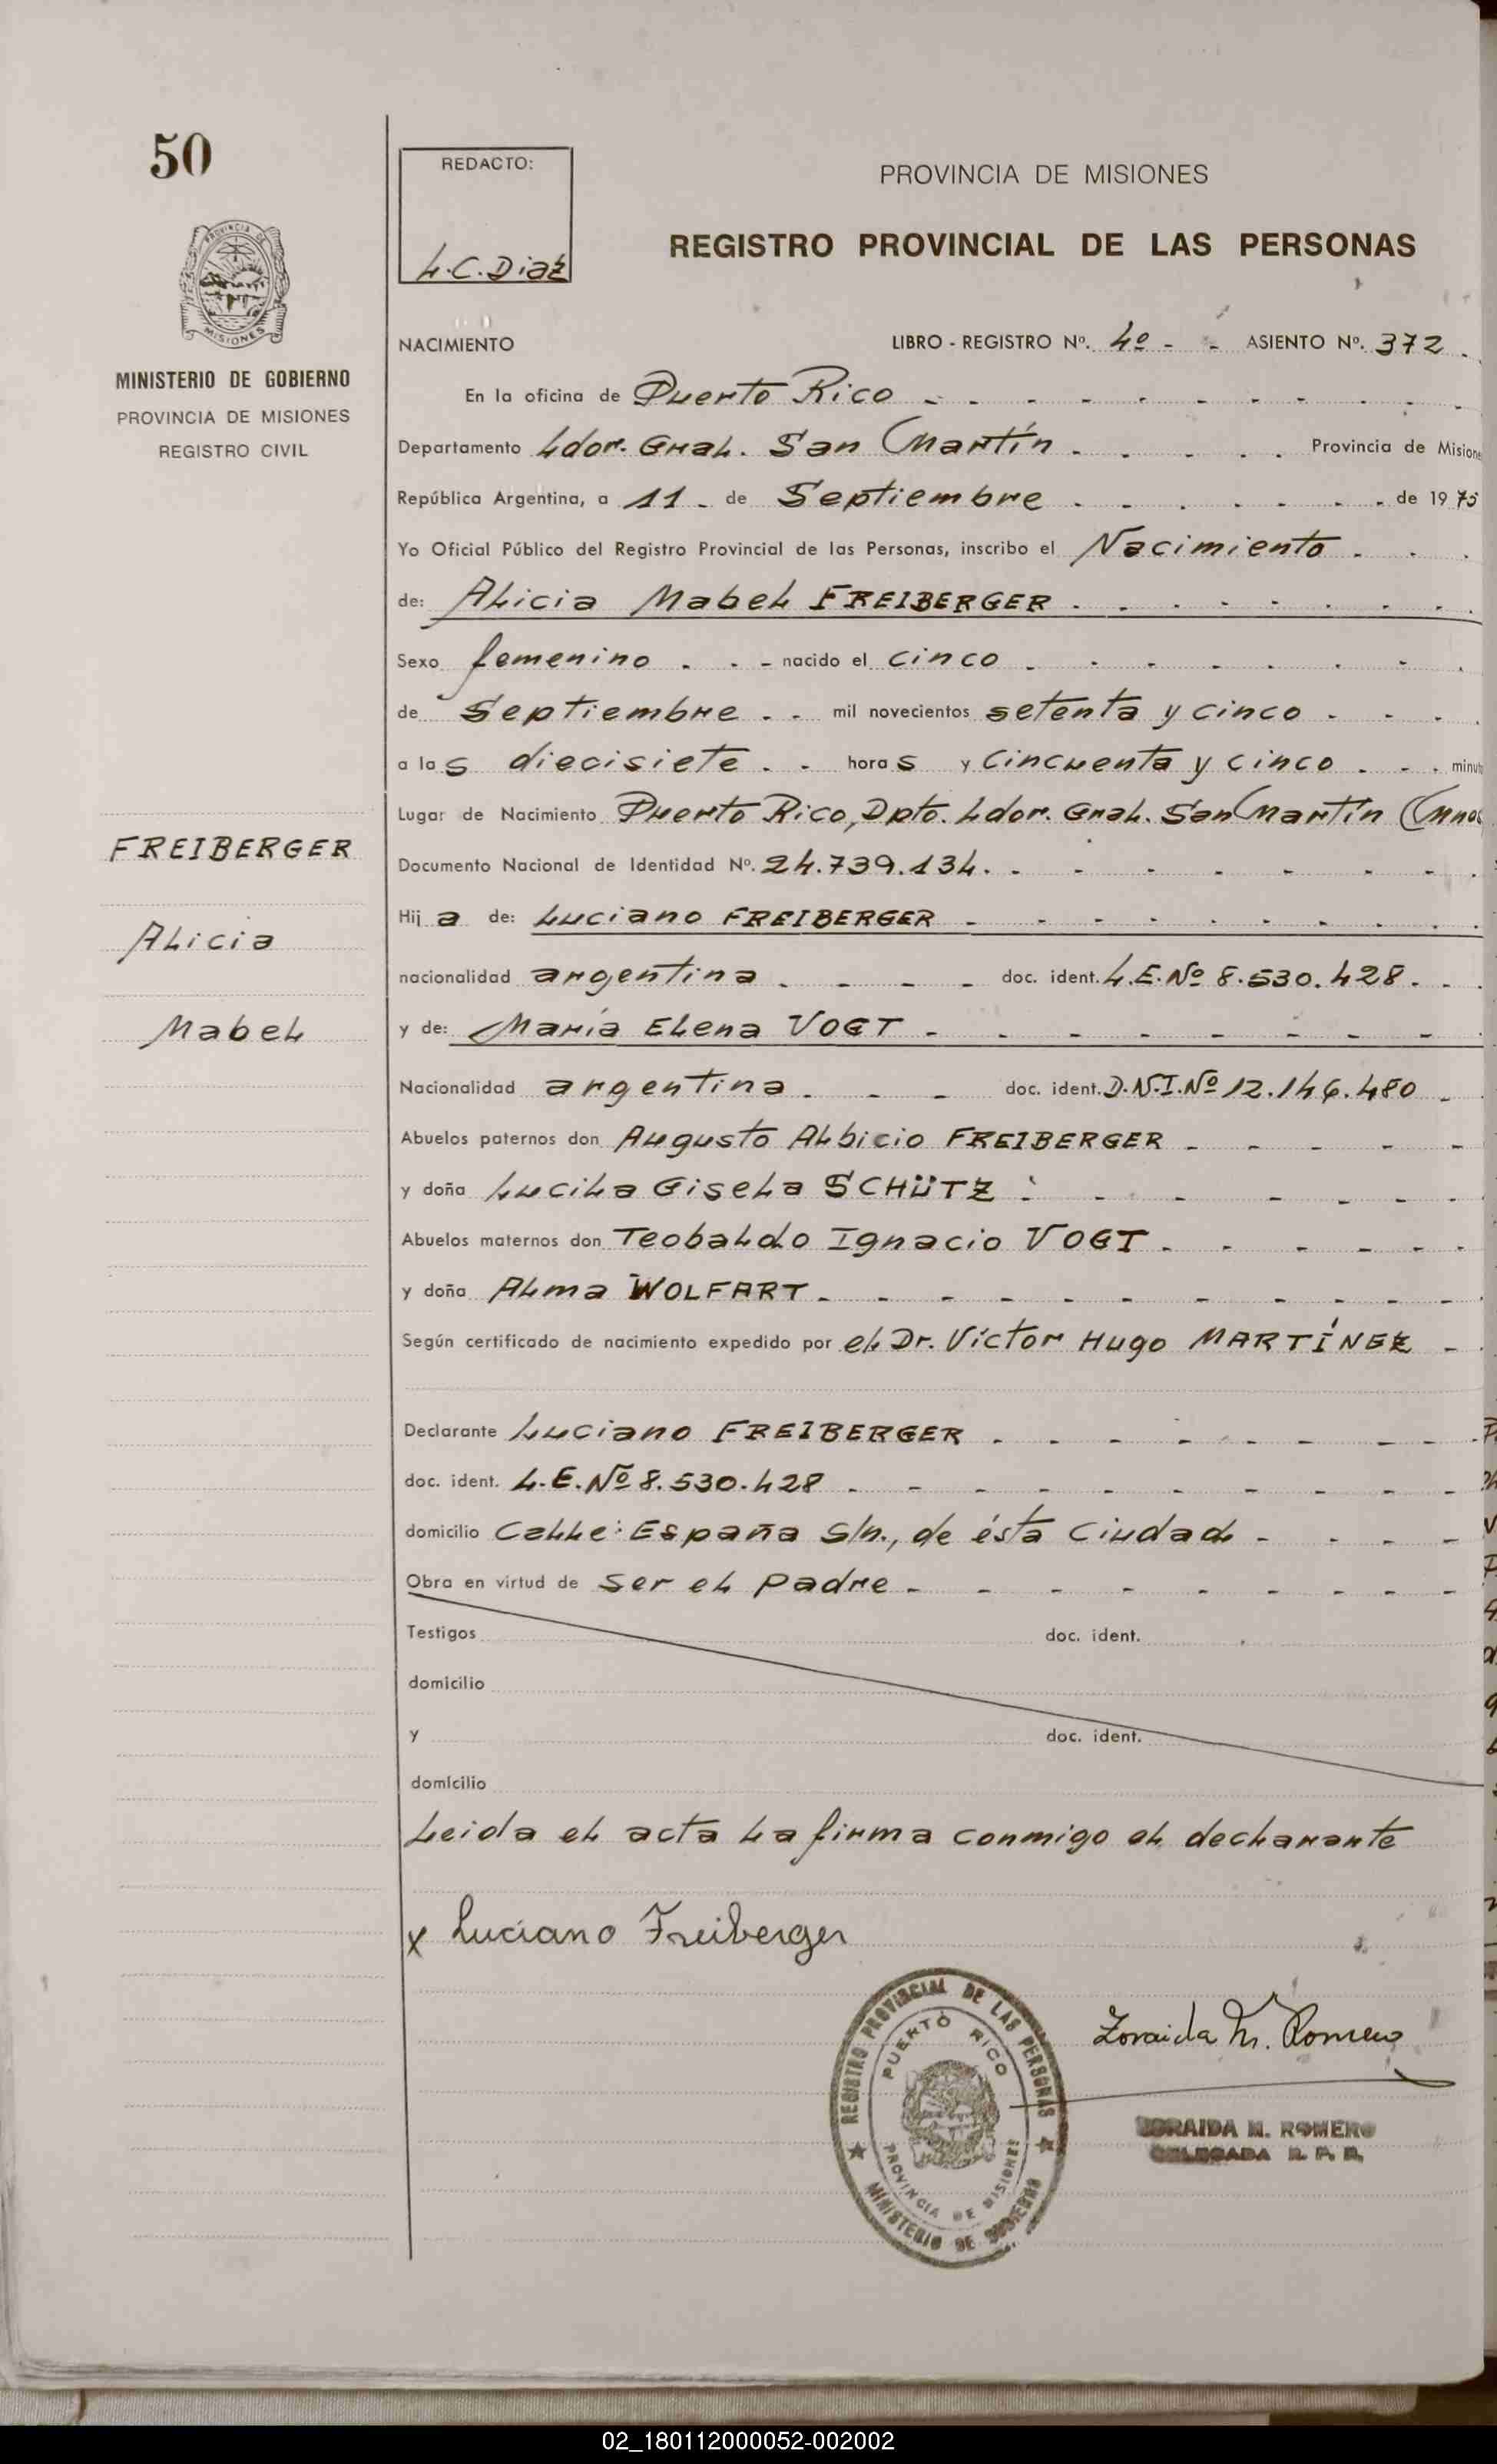 50
MISIONES
MINISTERIO DE GOBIERNO
PROVINCIA DE MISIONES
REGISTRO CIVIL
FREIBERGER
Alicia
Mabel
REDACTO:
L.C.Diaz
PROVINCIA DE MISIONES
REGISTRO PROVINCIAL DE LAS PERSONAS
NACIMIENTO LIBRO - REGISTRO Nº. 4º - - ASIENTO Nº. 372.
En la oficina de Puerto Rico
Departamento Ldor. Gral. San Martín Provincia de Misione
República Argentina, a 11 de Septiembre de 1975
Yo Oficial Público del Registro Provincial de las Personas, inscribo el Nacimiento
de: Alicia Mabel FREIBERGER
Sexo femenino nacido el cinco
de Septiembre mil novecientos setenta y cinco
a las diecisiete horas y cincuenta y cinco minut
Lugar de Nacimiento Puerto Rico, Dpto. Ldor. Gral. San Martín (Mnes
Documento Nacional de Identidad Nº. 24.739.134.
Hija de: Luciano FREIBERGER
nacionalidad argentina doc. ident. L.E.Nº 8.530.428.
y de: María Elena VOGT
Nacionalidad argentina doc. ident. D.N.I.Nº 12.146.480
Abuelos paternos don Augusto Albicio FREIBERGER
y doña Lucila Gisela SCHÜTZ
Abuelos maternos don Teobaldo Ignacio VOGT
y doña Alma WOLFART
Según certificado de nacimiento expedido por el Dr. Víctor Hugo MARTÍNEZ
Declarante Luciano FREIBERGER
doc. ident. L.E.Nº 8.530.428
domicilio Calle: España s/n., de ésta Ciudad
Obra en virtud de ser el padre
Testigos doc. ident.
domicilio
y doc. ident.
domicilio
Leida el acta la firma conmigo el declarante
x Luciano Freiberger
REGISTRO PROVINCIAL DE LAS PERSONAS
PUERTO RICO
PROVINCIA DE MISIONES
MINISTERIO DE GOBIERNO
Zoraida M. Romero
ZORAIDA M. ROMERO
DELEGADA R. P. P.
02_180112000052-002002